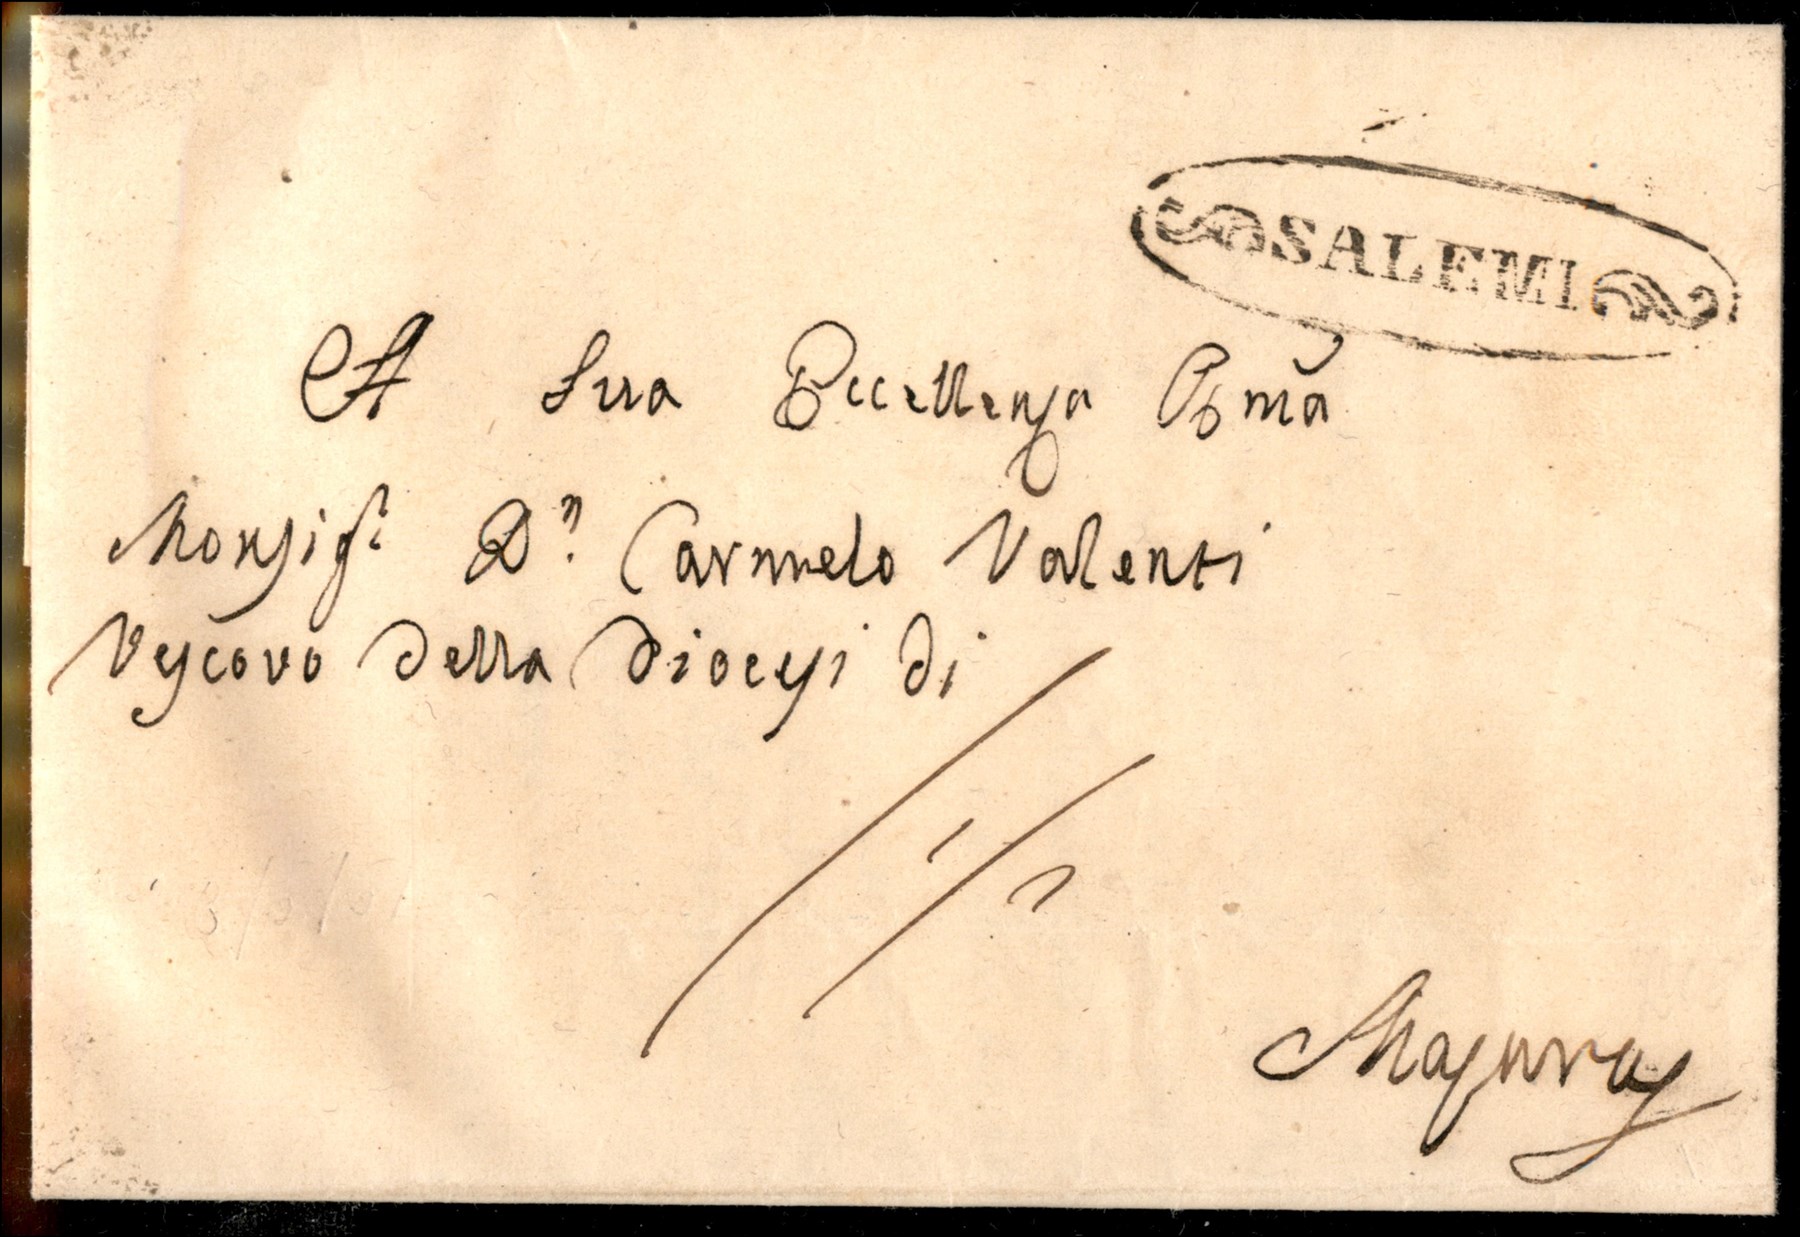 SALEMI
A Sua Eccellenza Rma
Monsigr Dn Carmelo Valenti
Vescovo della Diocesi di
Mazara